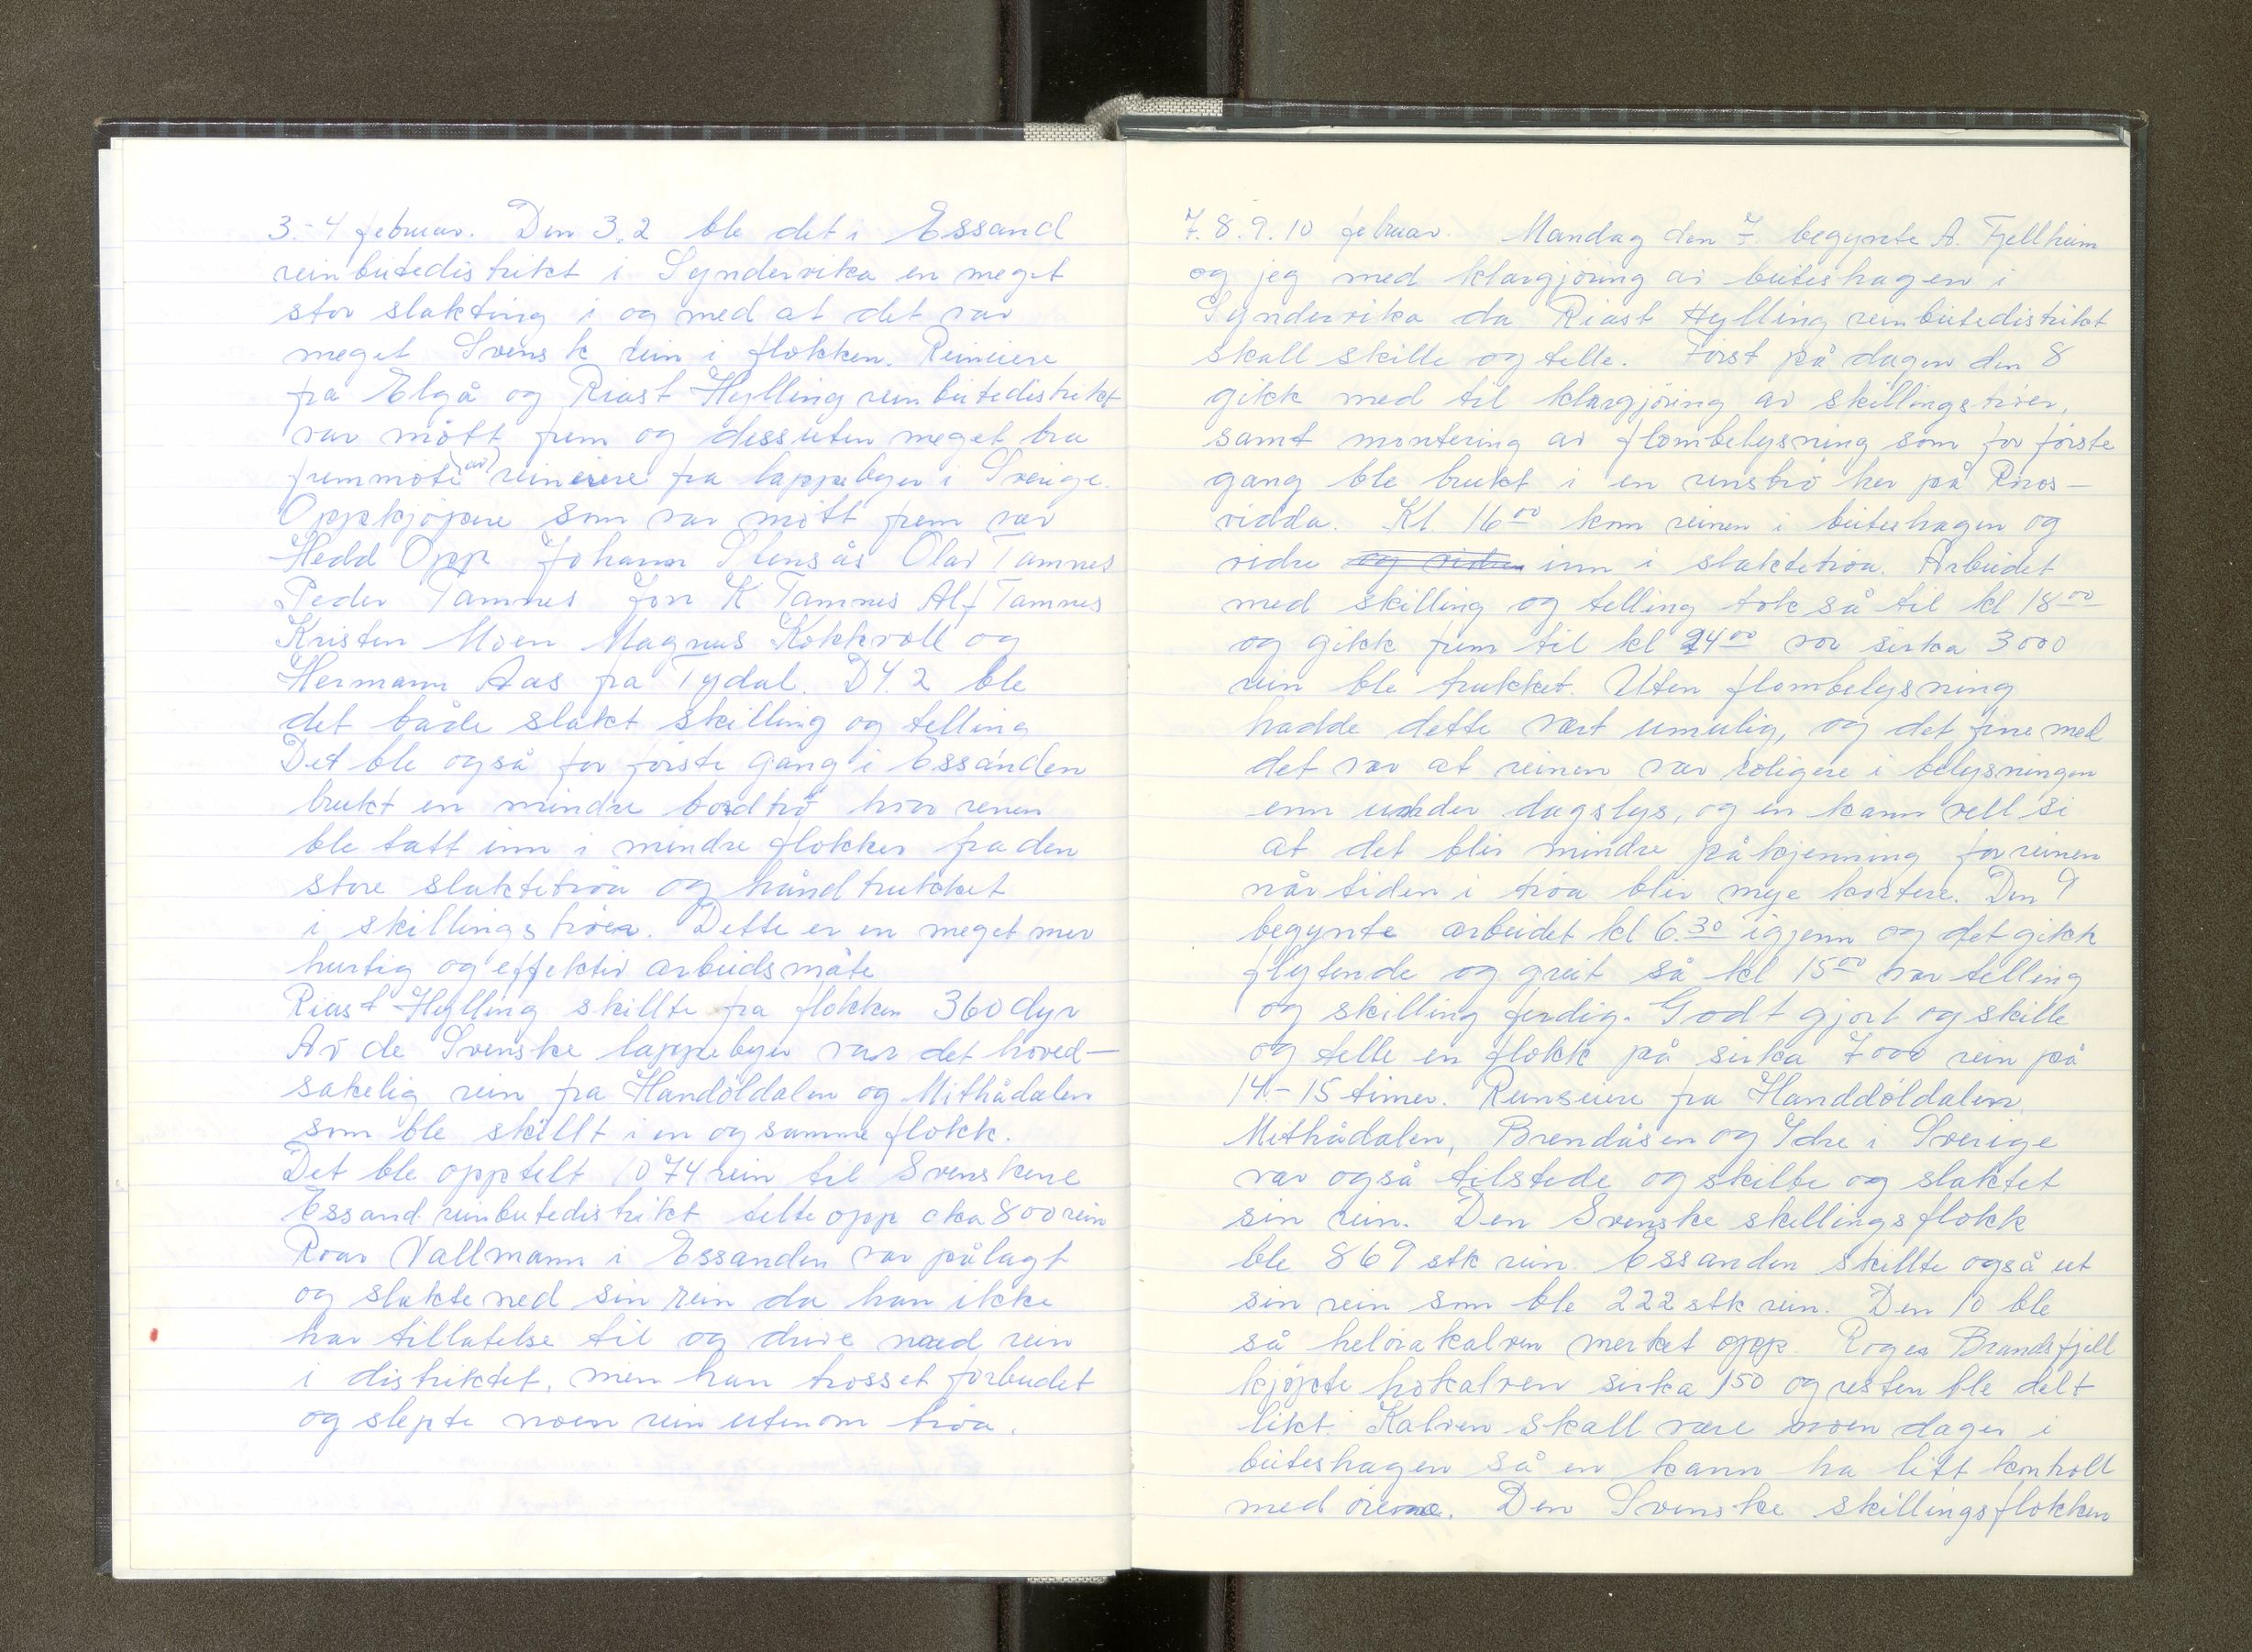 3.-4 februar. Den 3.2 ble det i Essand
reinbeitedistrikt i Syndervika en meget
stor slakting i og med at det var
meget Svensk rein i flokken. Reineiere
fra Elgå og Riast Hylling reinbeitedistrikt
var møtt frem og dessuten meget bra
fremmøte (av) reineiere fra lappebyer i Sverige.
Oppkjøpere som var møtt frem var
Hedd Opp Johann Stensås Olav Tamnes
Peder Tamnes Jon K Tamnes Alf Tamnes
Kristen Moen Magnus Kokkvoll og
Hermann Aas fra Tydal. D 4.2 ble
det både slakt skilling og telling
Det ble også for første gang i Essanden
brukt en mindre bordtrø hvor renen
ble tatt inn i mindre flokker fra den
store slaktetrøa og håndtrukket
i skillingstrøer. Dette er en meget mer
hurtig og effektiv arbeidsmåte
Riast-Hylling skillte fra flokken 360 dyr
Av de Svenske lappebyer var det hoved-
sakelig rein fra Handöldalen og Mithådalen
som ble skillt i en og samme flokk.
Det ble opptelt 1074 rein til Svenskene
Essand reinbeitedistrikt telte opp cka 800 rein
Roar Vallmann i Essanden var pålagt
og slakte ned sin rein da han ikke
har tillatelse til og drive med rein
i distriktet, men han trosset forbudet
og slepte noen rein utenom trøa.
7.8.9.10 februar. Mandag den 7. begynte A. Fjellheim
og jeg med klargjøring av beiteshagen i
Syndervika da Riast Hylling reinbeitedistrikt
skall skille og telle. Først på dagen den 8
gikk med til klargjøring av skillingstrøer,
samt montering av flombelysning som for første
gang ble brukt i en reinstrø her på Røros-
vidda. Kl. 16 00 kom reinen i beiteshagen og
vidre og vidre inn i slaktetrøa. Arbeidet
med skilling og telling tok så til kl 18 00
og gikk frem til kl 24 00 vor sirka 3000
rein ble trukket. Uten flombelysning
hadde dette vært umulig, og det fine med
det var at reinen var roligere i belysningen
enn under dagslys, og en kann vell si
at det blir mindre påkjenning for reinen
når tiden i trøa blir mye kortere. Den 9
begynte arbeidet kl 6.30 igjenn og det gikk
flytende og greit så kl 15 00 var telling
og skilling ferdig. Godt gjort og skille
og telle en flokk på sirka 7000 rein på
14-15 timer. Reinseiere fra Handdöldalen
Mithådalen, Brendåsen og Idre i Sverige
var også tilstede og skilte og slaktet
sin rein. Den Svenske skillingsflokk
ble 869 stk rein. Essanden skillte også ut
sin rein som ble 222 stk rein. Den 10 ble
så heløra kalven merket opp. Roger Brandsfjell
kjøpte hokalven sirka 150 og resten ble delt
likt. Kalven skall være noen dager i
beiteshagen så en kann ha litt kontroll
med ørene. Den Svenske skillingsflokken